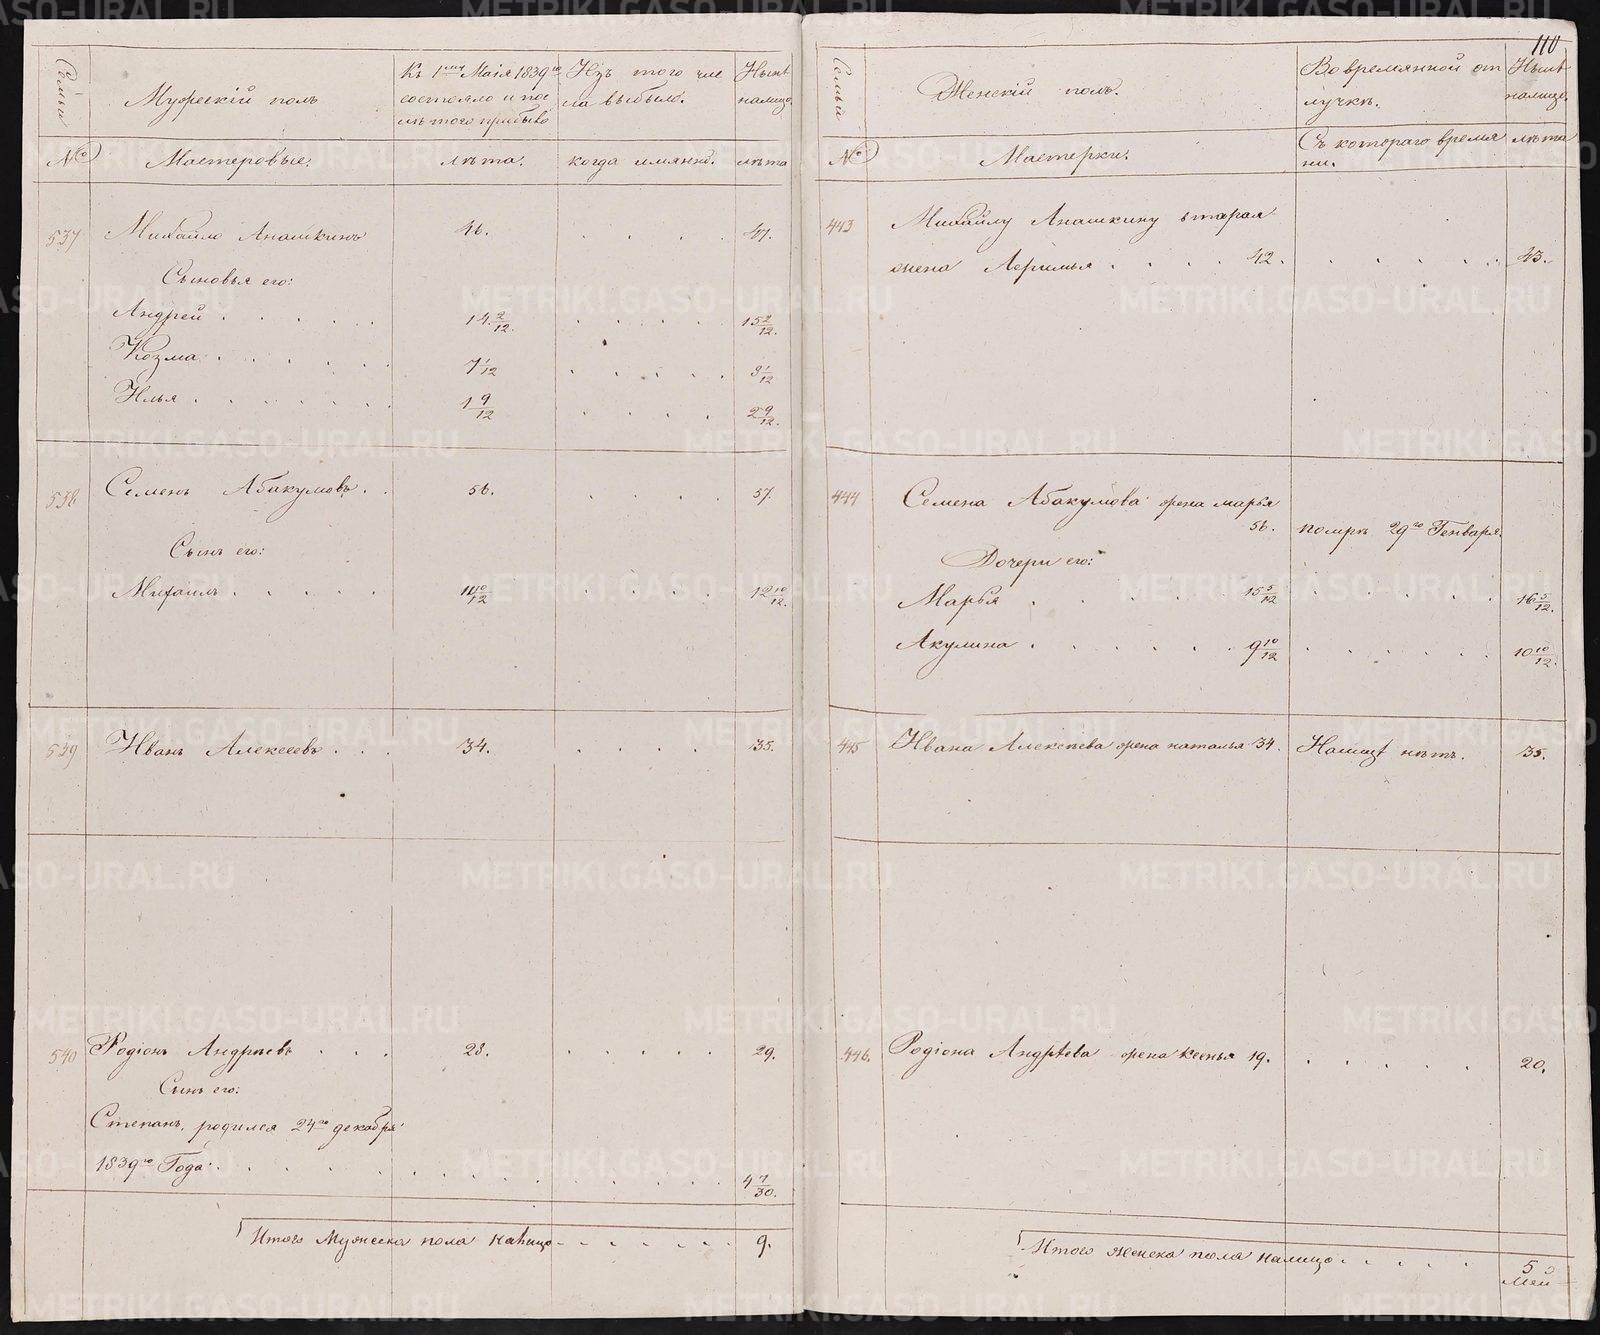 110
Семьи
Мужескій полъ
Къ 1му Маія 1839го
состояло и пос
лѣ того прибыло
Изъ того чис
ла выбыло.
Нынѣ
налицо.
№
Мастеровые.
лѣта.
когда имянно.
лѣта
537
Михайло Анашкинъ
46.
47.
Сыновья его:
Андрей
14 2/12.
15 2/12.
Козма
7 1/12
8 1/12
Илья
1 9/12
2 9/12.
538
Семенъ Абакумовъ.
56.
57.
Сынъ его:
Михаилъ
11 10/12
12 10/12.
539
Иванъ Алексеевъ
34.
35.
540
Родіонъ Андреевъ
28.
29.
Сынъ его:
Степанъ, родился 24го декабря
1839го Года
4 7/30.
Итого Мужеска пола налицо
9.
Семьи
Женскій полъ.
Во времянной от
лучкѣ.
Нынѣ
налицо.
№
Мастерки.
Съ котораго время
ни.
лѣта
443
Михайлу Анашкину вторая
жена 42.
43.
444
Семена Абакумова жена марья
56.
помрѣ 29го Генваря.
Дочери его:
Марья
15 5/12
16 5/12.
Акулина
9 10/12
10 10/12.
445
Ивана Алексѣева жена наталья 34.
Налицѣ нѣтъ.
35.
446.
Родіона Андрѣева жена ксенья 19.
20.
Итого женска пола налицо
5
METRIKI.GASO-URAL.RU